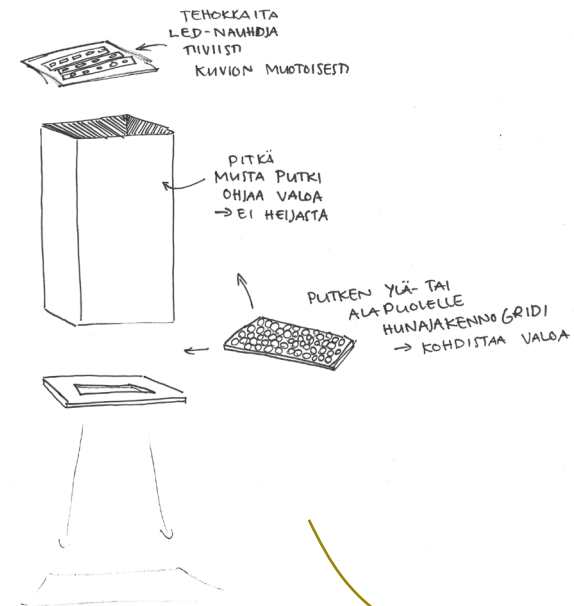 TEHOKKAITA
LED-NAUHOJA
TIIVIISTI
KUVION MUOTOISESTI
PITKÄ
MUSTA PUTKI
OHJAA VALOA
→ EI HEIJASTA
PUTKEN YLÄ- TAI
ALAPUOLELLE
HUNAJAKENNOGRIDI
→ KOHDISTAA VALOA